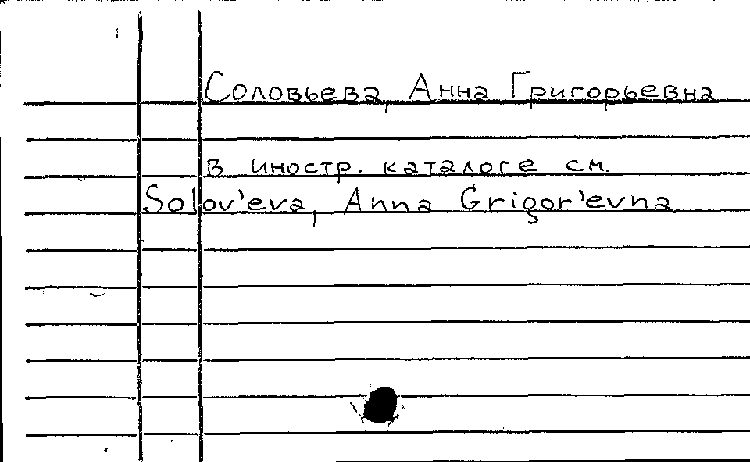 Соловьева, Анна Григорьевна
в иностр. каталоге см.
Solov'eva, Anna Grigor'evna